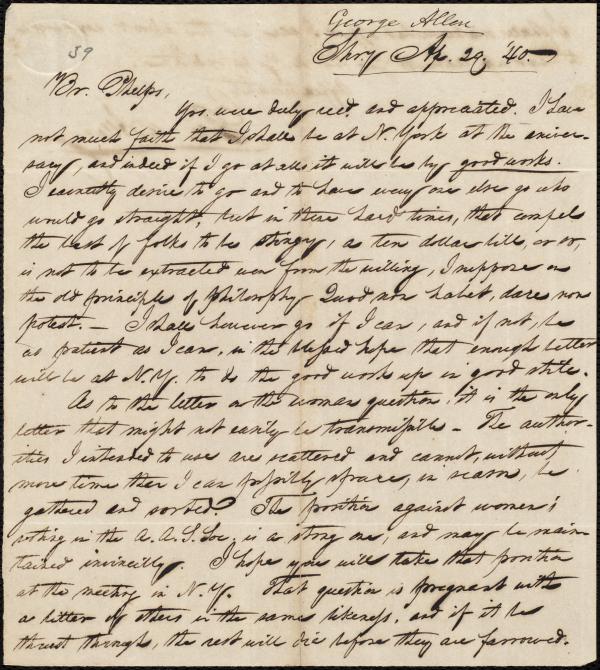 George Allen
59
Shry Ap. 29. '40.
Br. Phelps,
Yrs. were duly recd. and appreciated. I have
not much faith that I shall be at N. York at the anniver-
sary, and indeed if I go at all it will be by good works.
I earnestly desire to go and to have every one else go who
would go straight, but in these hard times, that compel
the best of folks to be stingy, a ten dollar bill, or so,
is not to be extracted even from the willing, I suppose on
the old principle of philosophy Quod non habet, dare non
potest. — I shall however go if I can, and if not, be
as patient as I can, in the blessed hope that enough better
will be at N.Y. to do the good work up in good style.
As to the letter on the woman question, it is the only
letter that might not easily be transmissible — The author-
ities I intended to use are scattered and cannot, without
more time than I can possibly spare, in season, be
gathered and sorted. The position against women's
voting in the A.A.S. Soc. is a strong one, and may be main-
tained invincibly. I hope you will take that position
at the meeting in N.Y. That question is pregnant with
a litter of others in the same likeness, and if it be
thrust through, the rest will die before they are farrowed.